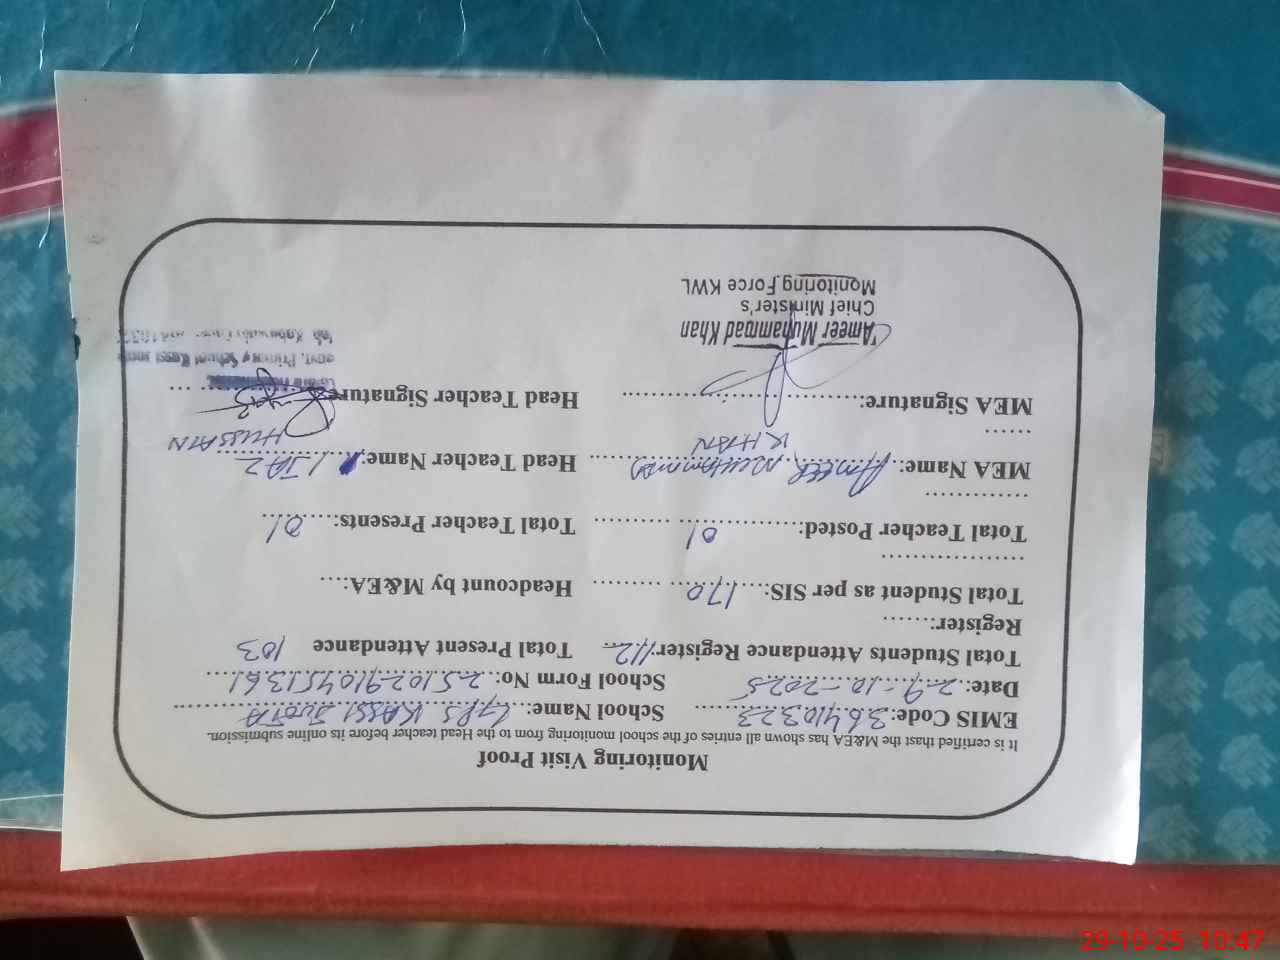 Monitoring Visit Proof
It is certified thast the M&EA has shown all entries of the school monitoring from to the Head teacher before its online submission.
EMIS Code: 36410323 School Name: GPS KASSI JOOTA
Date: 29-10-2025 School Form No: 25102910451361
Total Students Attendance Register 112 Total Present Attendance 103
Register:.......
Total Student as per SIS: 170 Headcount by M&EA:...
Total Teacher Posted: 01 Total Teacher Presents: 01
MEA Name: AMEER MUHAMMAD KHAN Head Teacher Name: IJAZ HUSSAIN
MEA Signature: Head Teacher Signature
Ameer Muhammad Khan
Chief Minister's
Monitoring Force KWL
Govt. Primary School Kassi
29-10-25 10:47